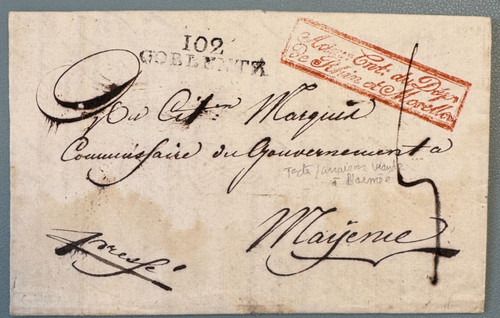 102
COBLENTZ
Adm. on Cent. du Dépt.
de Rhin et Moselle
Au Citen Marquis
Commissaire du Gouvernement a
à l'armée
Maÿence
pressé